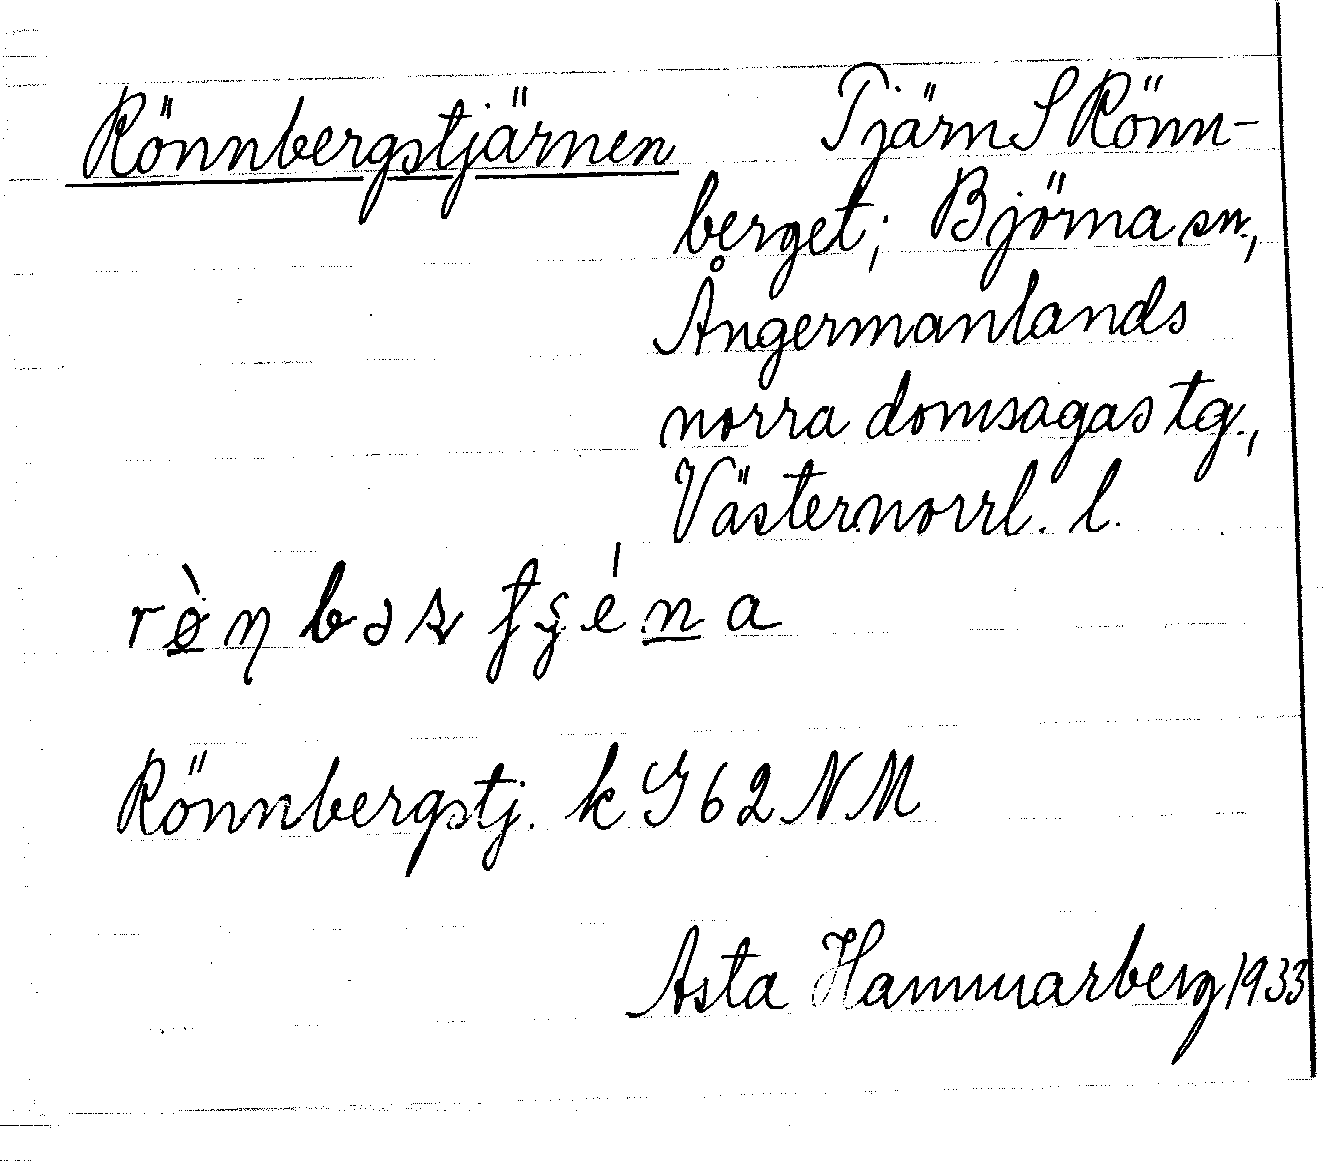 Rönnbergstjärnen Tjärn S Rönn-
berget; Björna sn.,
Ångermanlands
norra domsagas tg.,
Västernorrl. l.
Rönnbergstj. k G 62 NM
Asta Hammarberg 1933